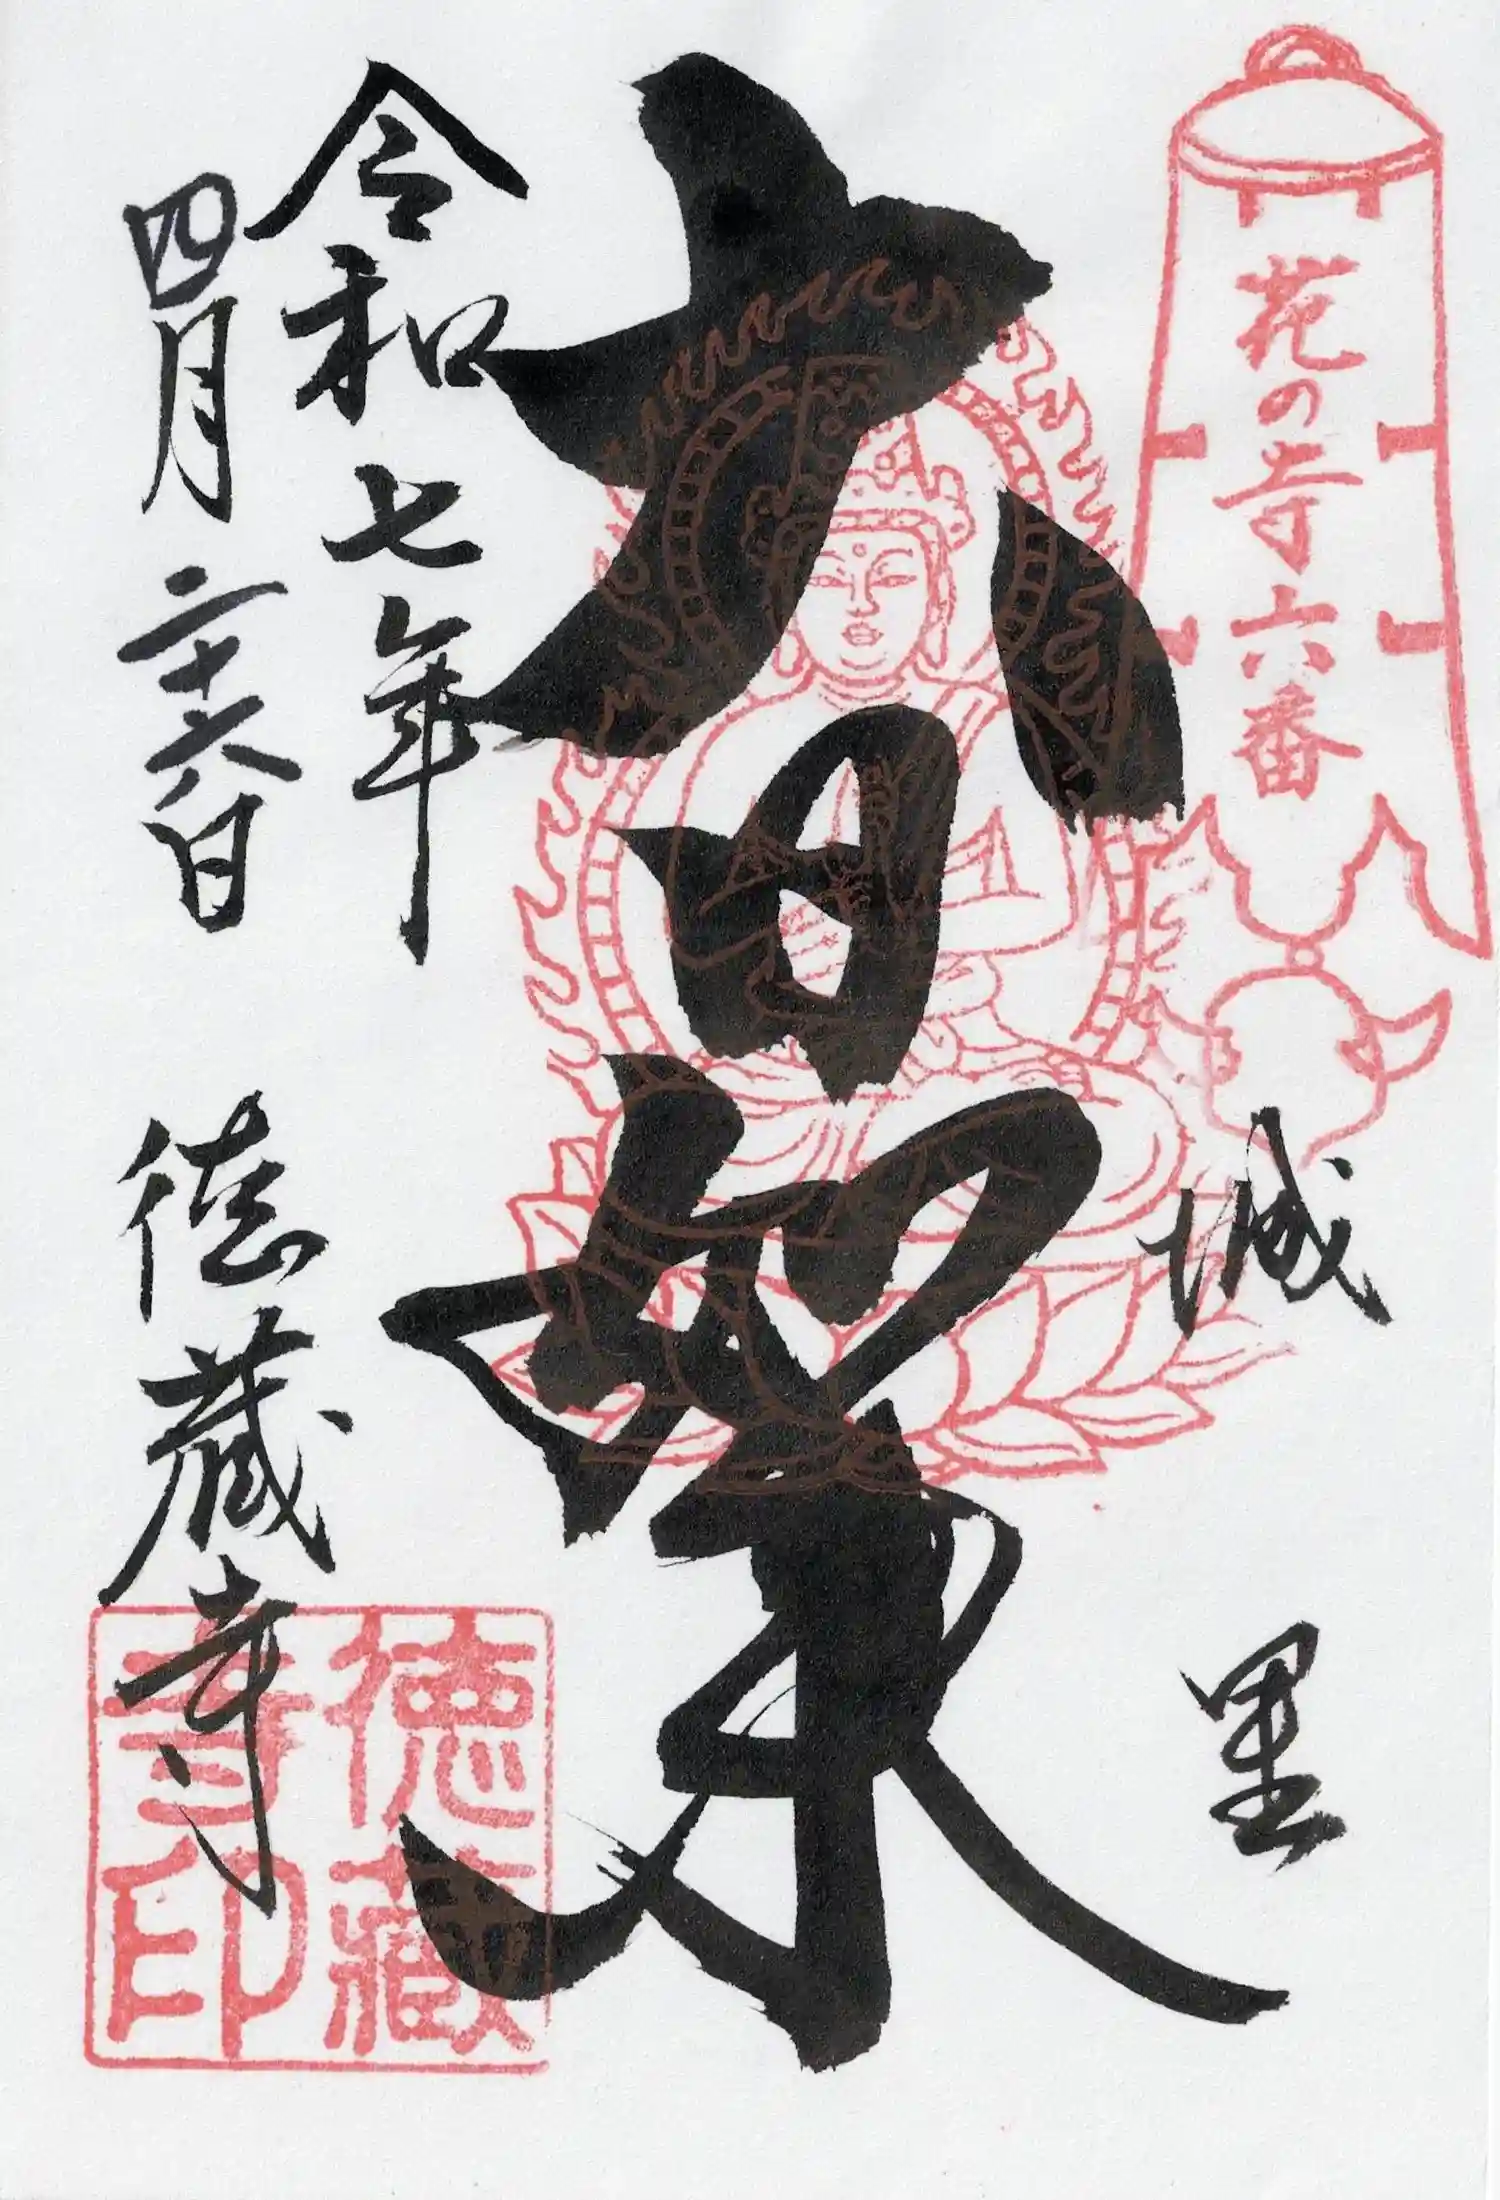 花の寺六番
城里
大日如来
令和七年
四月二十六日
徳蔵寺
徳藏
寺印